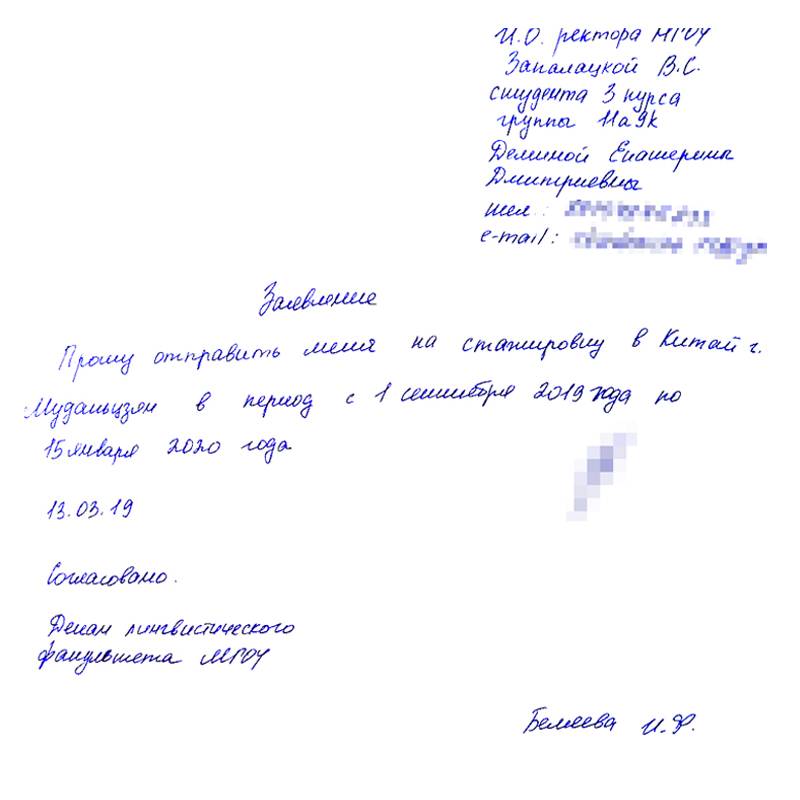 И.О. ректора МГОУ
Запалацкой В.С.
студента 3 курса
группы 11а9к
Деминой Екатерины
Дмитриевны
тел.:
e-mail:
Заявление
Прошу отправить меня на стажировку в Китай г.
Муданьцзян в период с 1 сентября 2019 года по
15 января 2020 года
13.03.19
Согласовано.
Декан лингвистического
факультета МГОУ
Беляева И.Ф.